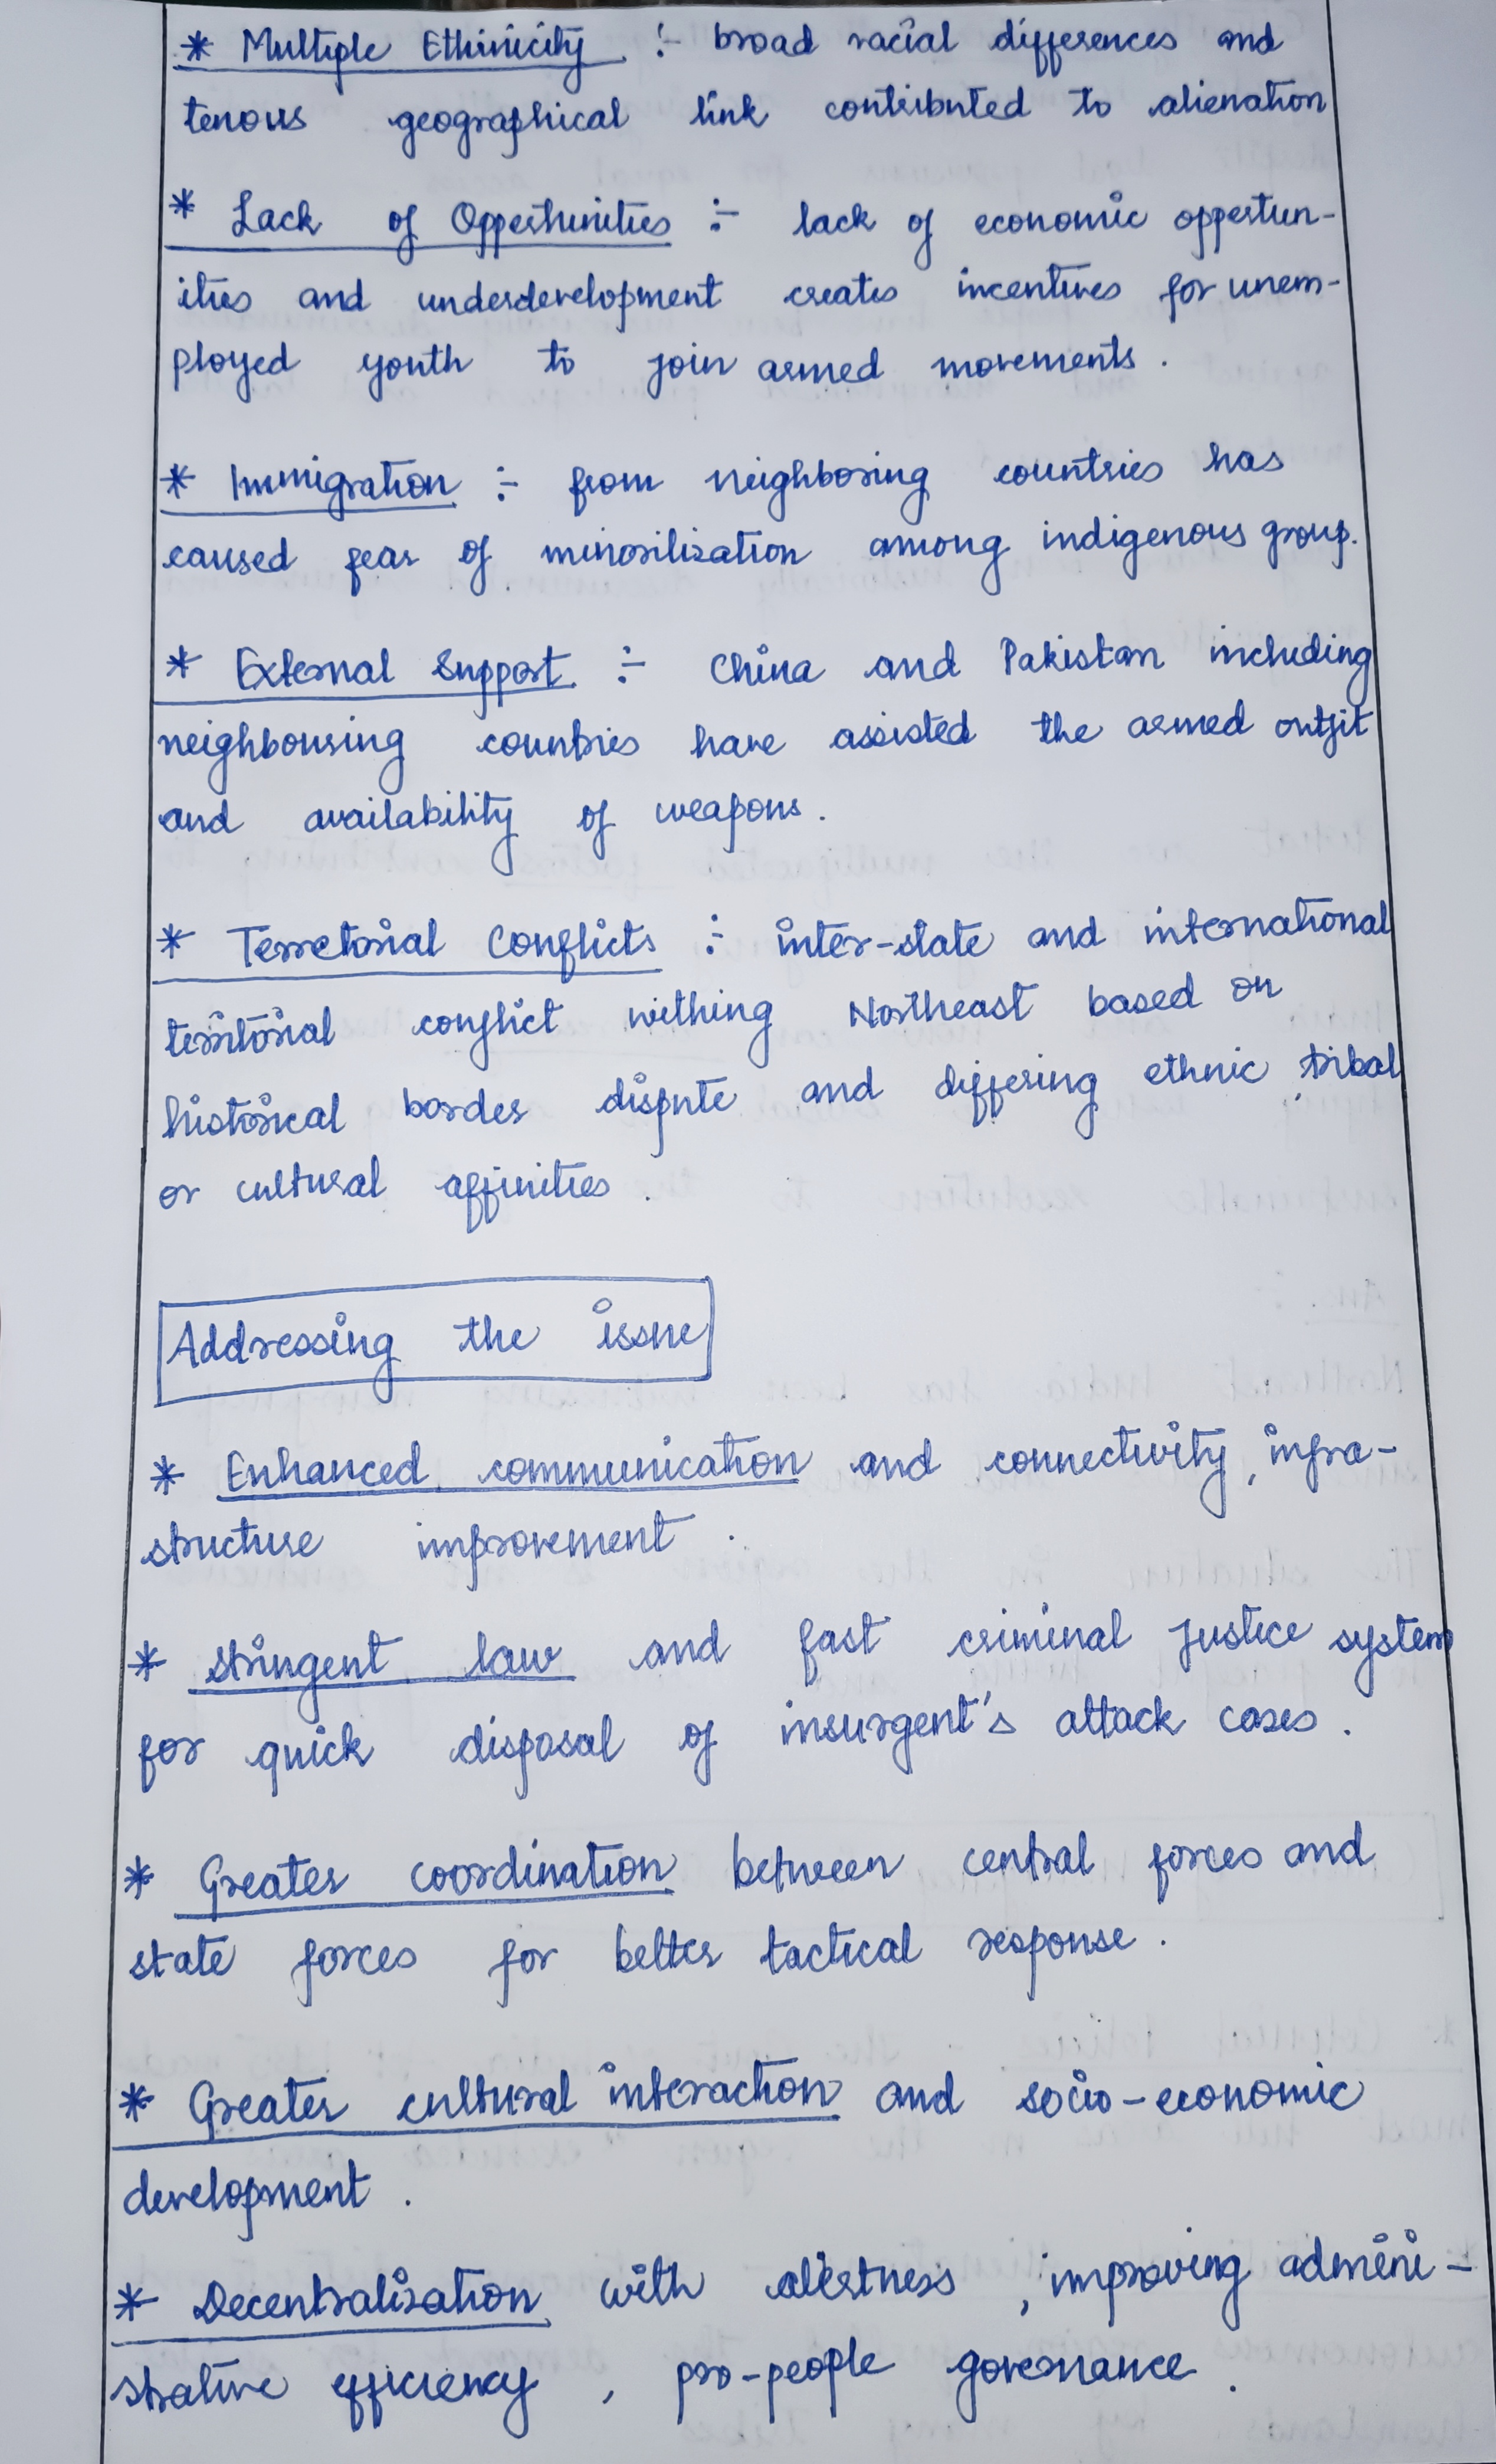 * Multiple Ethinicity :- broad racial differences and
tenous geographical link contributed to alienation
* Lack of Oppertunities :- lack of economic oppertun-
ities and underdevelopment creates incentives for unem-
ployed youth to join armed movements.
* Immigration :- from neighboring countries has
caused fear of minorilization among indigenous group.
* External Support :- China and Pakistan including
neighbouring countries have assisted the armed outfit
and availability of weapons.
* Terretorial Conflicts :- inter-state and international
territorial conflict withing Northeast based on
historical border dispute and differing ethnic, tribal
or cultural affinities.
Addressing the issue
* Enhanced communication and connectivity, infra-
structure improvement.
* stringent law and fast criminal justice system
for quick disposal of insurgent's attack cases.
* Greater coordination between central forces and
state forces for better tactical response.
* Greater cultural interaction and socio-economic
development.
* Decentralisation with alertness, improving admini-
strative efficiency, pro-people governance.